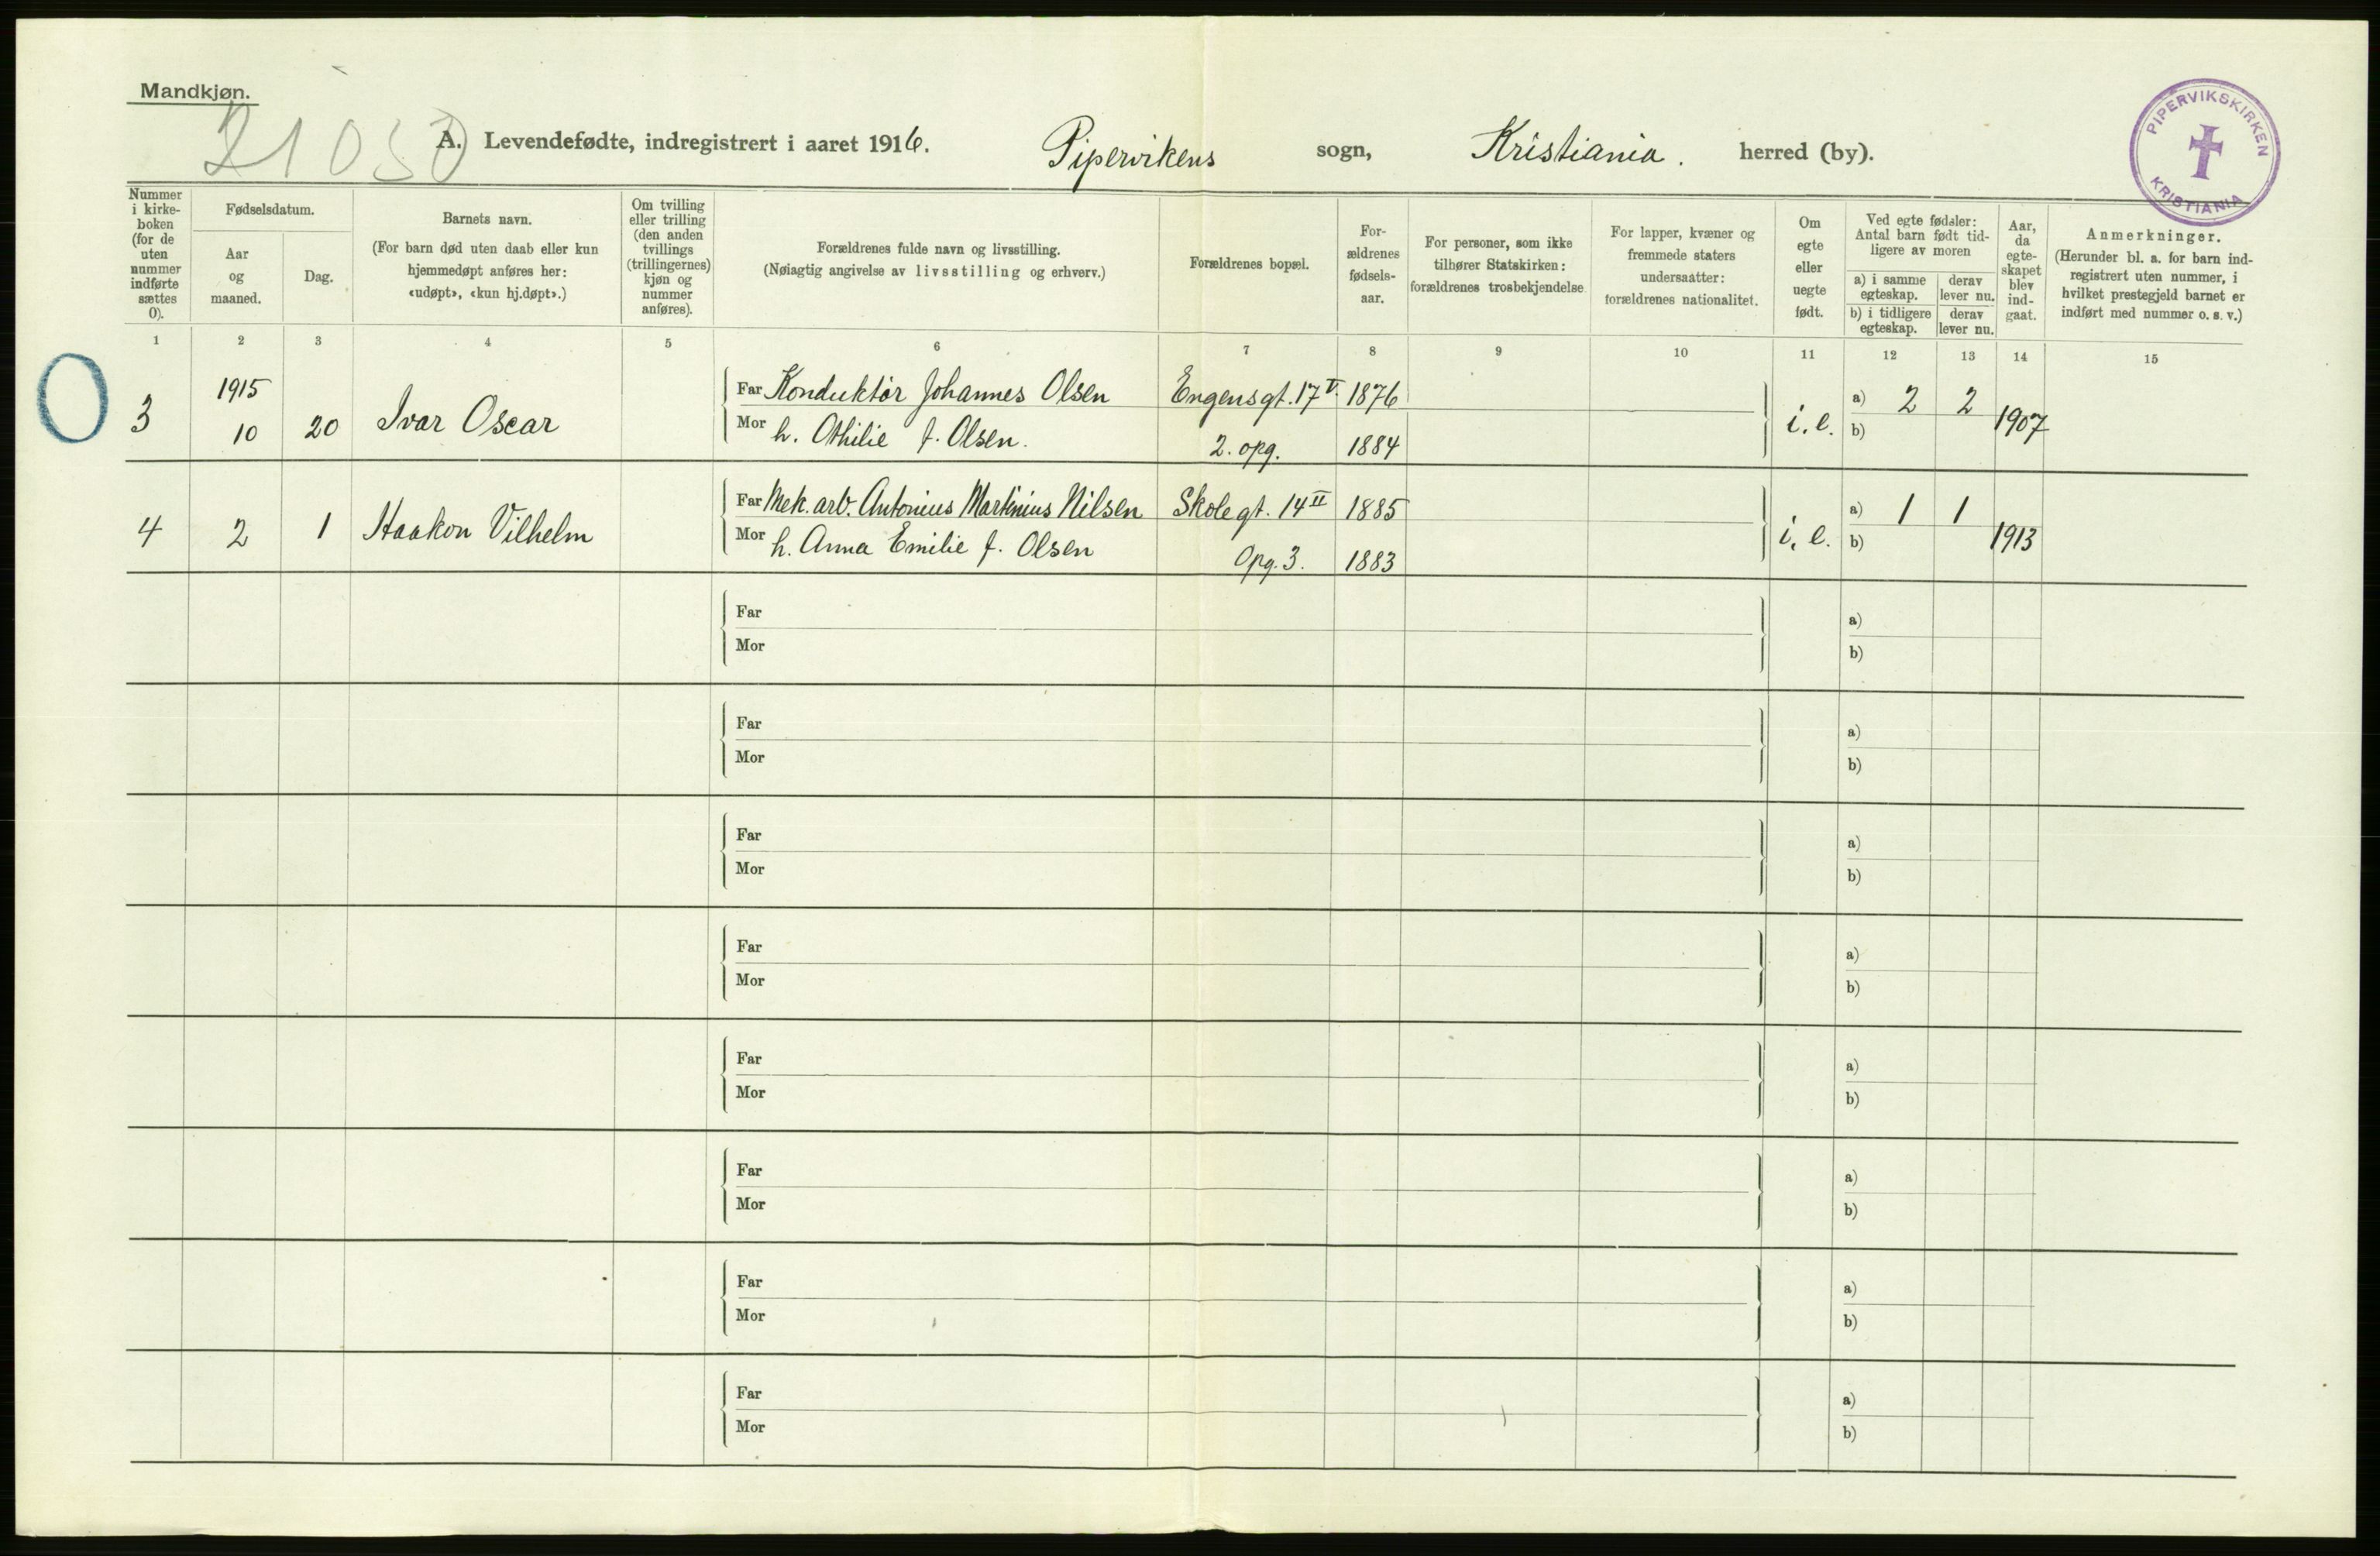 Mandkjøn.
A. Levendefødte, indregistrert i aaret 1916. Pipervikens sogn, Kristiania. herred (by).
PIPERVIKSKIRKEN
KRISTIANIA
Nummer i kirke-boken (for de uten nummer indførte sættes 0).
Fødselsdatum.
Aar og maaned.
Dag.
Barnets navn.
(For barn død uten daab eller kun hjemmedøpt anføres her: «udøpt», «kun hj.døpt».)
Om tvilling eller trilling (den anden tvillings (trillingernes) kjøn og nummer anføres).
Forældrenes fulde navn og livsstilling.
(Nøiagtig angivelse av livsstilling og erhverv.)
Forældrenes bopæl.
For-ældrenes fødsels-aar.
For personer, som ikke tilhører Statskirken: forældrenes trosbekjendelse
For lapper, kvæner og fremmede staters undersaatter: forældrenes nationalitet.
Om egte eller uegte født.
Ved egte fødsler: Antal barn født tid-ligere av moren
a) i samme egteskap.
derav lever nu.
b) i tidligere egteskap.
derav lever nu.
Aar, da egte-skapet blev ind-gaat.
Anmerkninger.
(Herunder bl. a. for barn ind-registrert uten nummer, i hvilket prestegjeld barnet er indført med nummer o. s. v.)
1 2 3 4 5 6 7 8 9 10 11 12 13 14 15
0
1915
3 10 20 Ivar Oscar
Far Konduktør Johannes Olsen Engensgt. 17 V. 1876
Mor h. Othilie f. Olsen. 2. opg. 1884
i. e. a) 2 2 1907
b)
4 2 1 Haakon Vilhelm
Far Mek. arb. Antonius Martinius Nilsen Skolegt. 14 II 1885
Mor h. Anna Emilie f. Olsen Opg. 3. 1883
i. e. a) 1 1 1913
b)
Far a)
Mor b)
Far a)
Mor b)
Far a)
Mor b)
Far a)
Mor b)
Far a)
Mor b)
Far a)
Mor b)
Far a)
Mor b)
Far a)
Mor b)